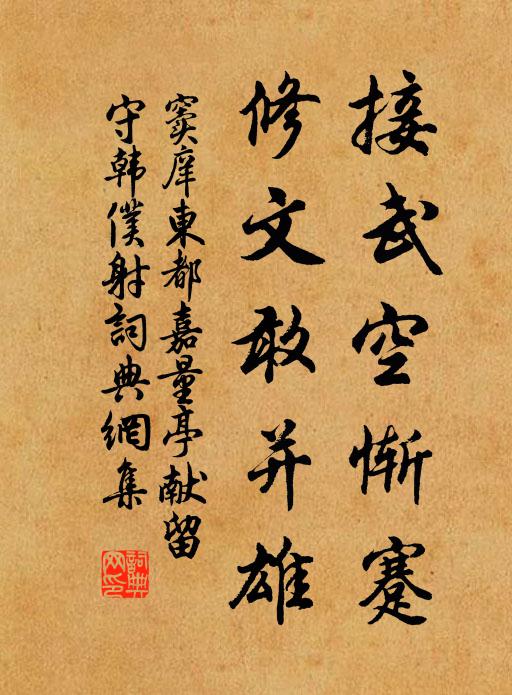 接武空惭蹇
修文敢并雄
窦庠東都嘉量亭献留
守韩僕射詞典網集
詞典网印